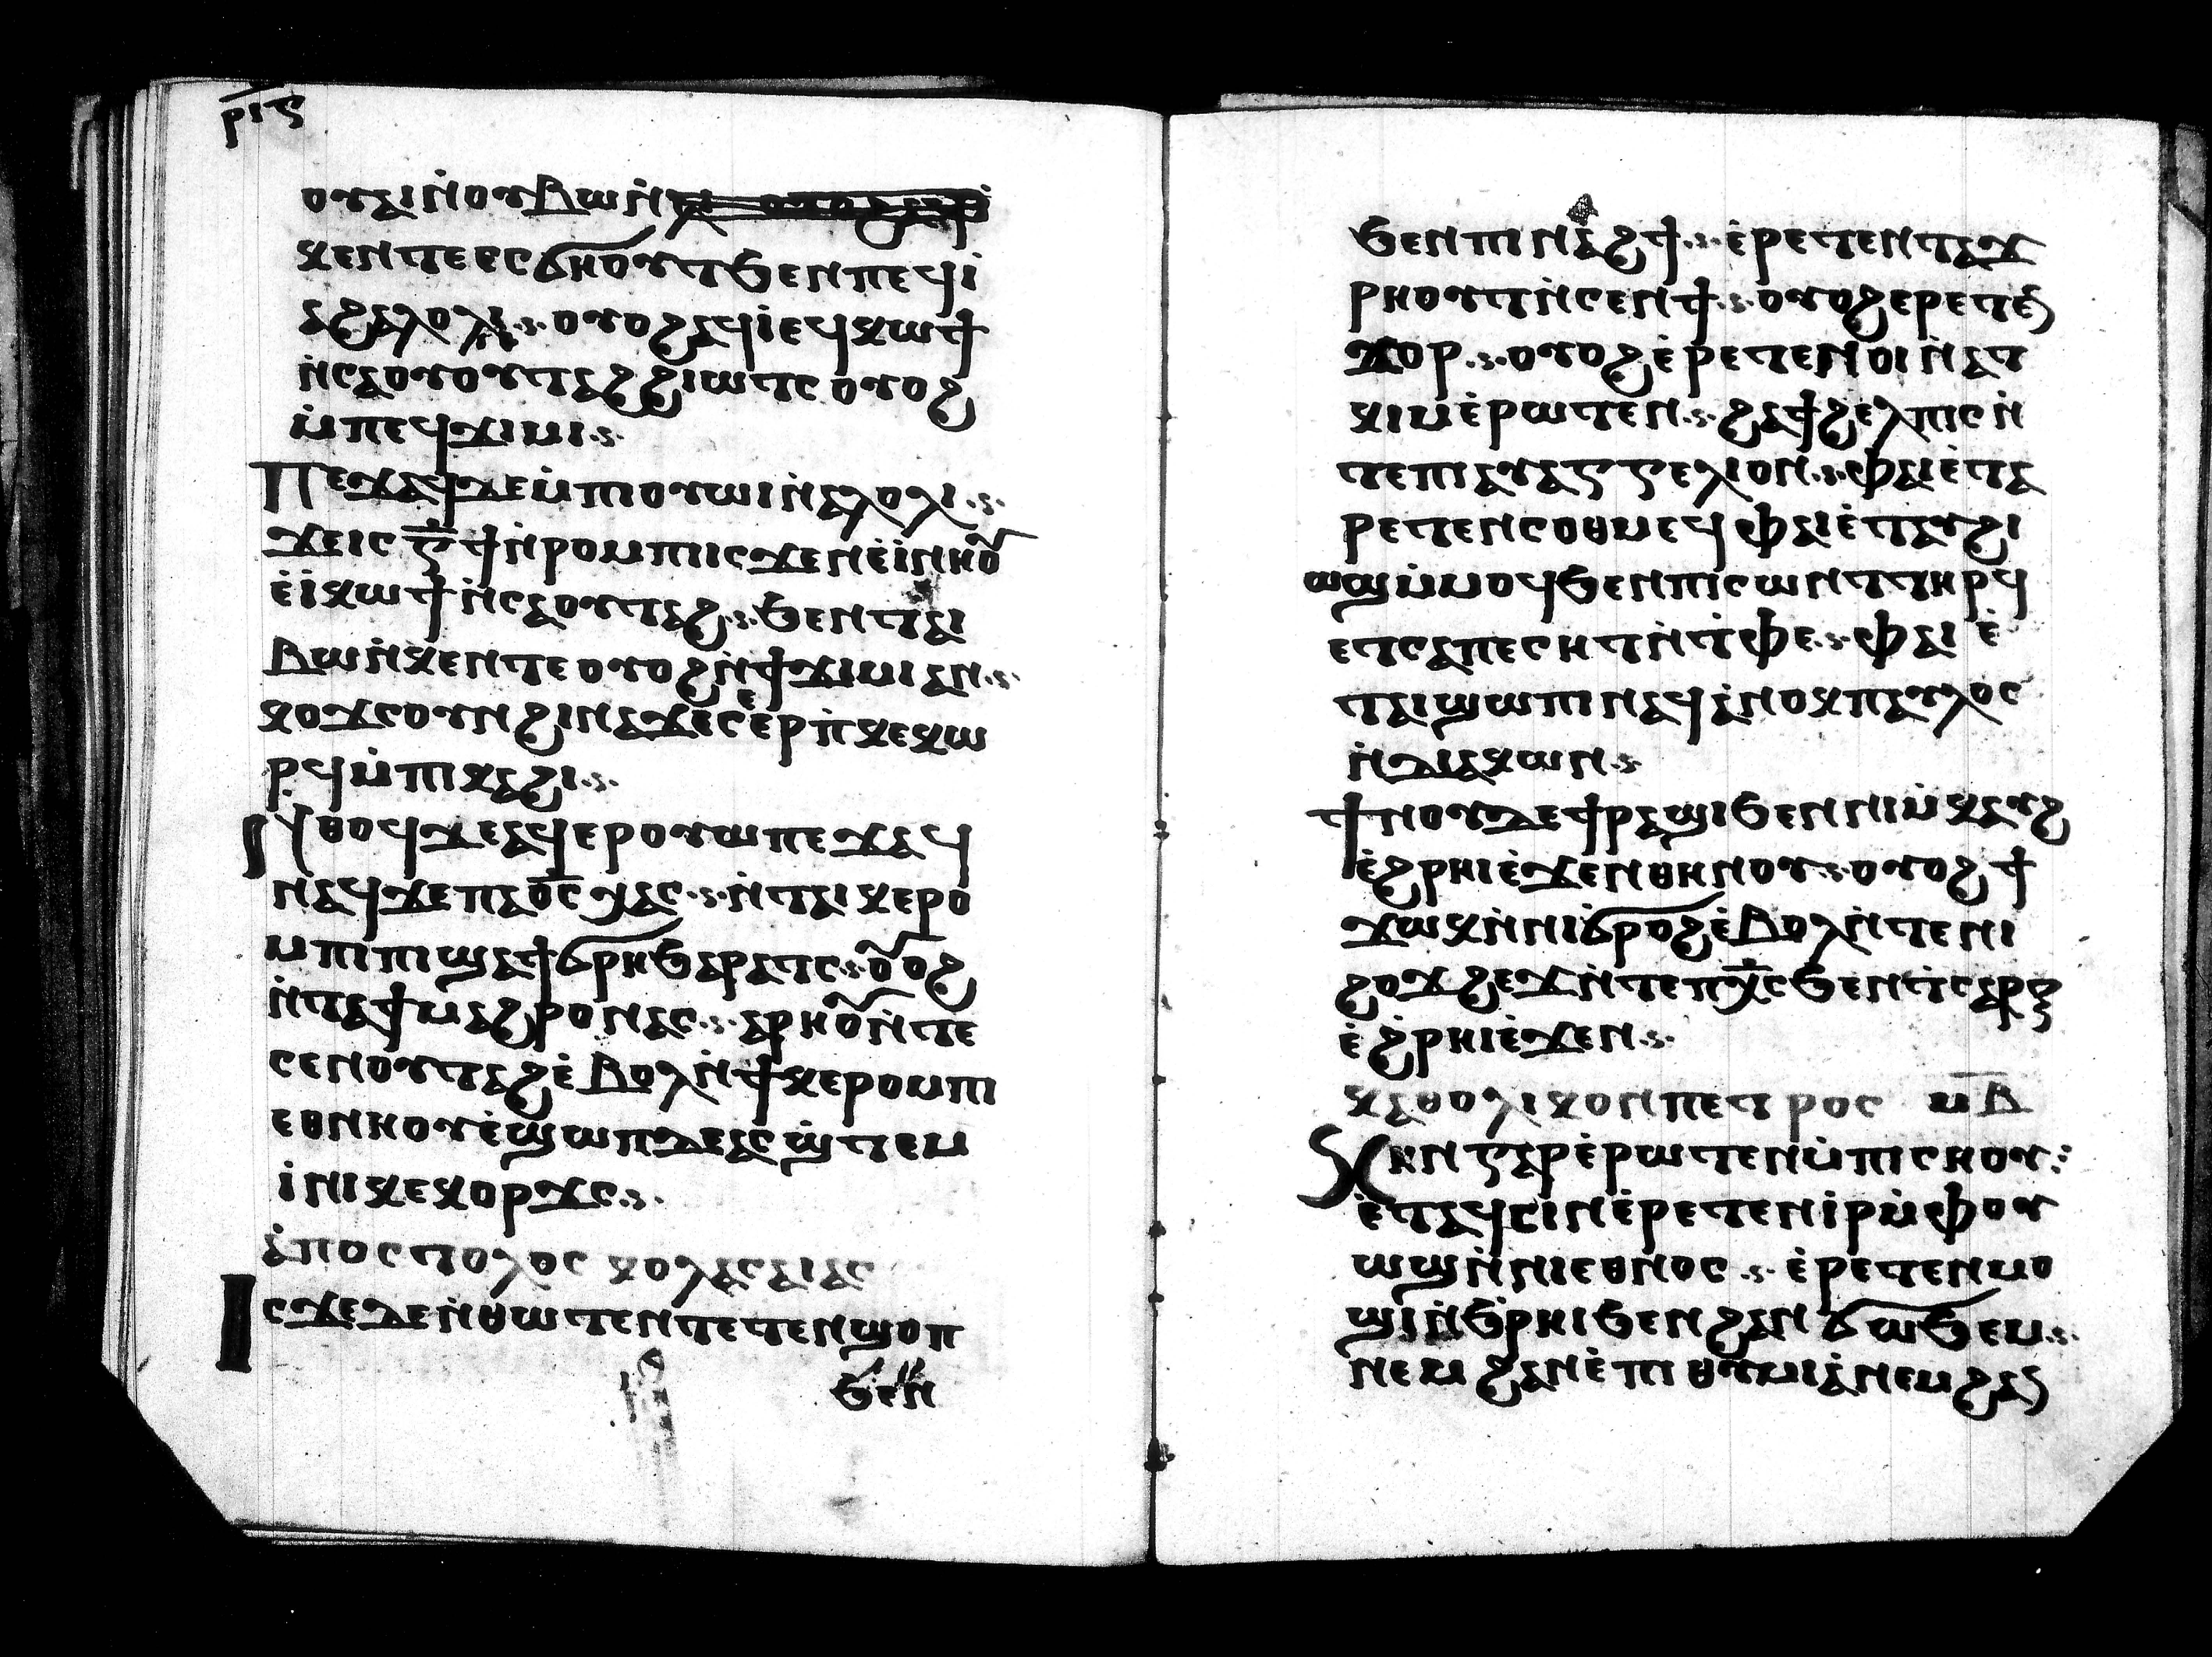 ⲣⲓⲋ
ⲟⲩⲁⲓⲛ̀ⲟⲩⲃⲱⲛ̀
ⲕⲉⲛⲧⲉⲉⲥϭⲏⲟⲩⲧϧⲉⲛⲡⲉϥⲓ
ⲁϩⲁⲗⲟⲗⲓ ⲟⲩⲟϩⲁϥⲓ̀ⲉϥⲕⲱϯ
ⲛ̀ⲥⲁⲟⲩⲟⲩⲧⲁϩϩⲓⲱⲧⲥ ⲟⲩⲟϩ
ⲙ̀ⲡⲉϥϫⲓⲙⲓ
ⲡⲉϫⲁϥⲇⲉⲙ̀ⲡⲓⲟⲩⲱⲓⲛ̀ⲁⲗⲟⲗⲓ
ϫⲉⲓⲥ ⲅ̅ϯⲛ̀ⲣⲟⲙⲡⲓⲓⲥϫⲉⲛⲉ̀ⲓ̀ⲛⲏⲟⲩ
ⲉ̀ⲓ̀ⲕⲱϯⲛ̀ⲥⲁⲟⲩⲧⲁϩ ϧⲉⲛⲧⲁⲓ
ⲃⲱⲛ̀ⲕⲉⲛⲧⲉ ⲟⲩⲟϩⲛ̀ϯϫⲓⲙⲓⲁⲛ
ⲕⲟϫⲥⲟⲩⲛϩⲓⲛⲁϫⲉⲥⲉ̀ⲣⲡ̀ⲕⲉⲕⲱ
ⲣϥⲙ̀ⲡⲓⲕⲁϩⲓ
ⲛⲑⲟϥⲇⲉⲁϥⲉⲣⲟⲩⲱ ⲡⲉϫⲁϥ
ⲛⲁϥϫⲉⲡⲁⲟ̅ⲥ̅ ⲭⲁⲥ ⲛ̀ⲧⲁⲓⲕⲉⲣⲟ
ⲙⲡⲓⲡⲓϣⲁϯϭⲣⲏϧⲁⲣⲁⲧⲥ ⲟⲩⲟϩ
ⲛ̀ⲧⲁϯⲙⲁϩⲣⲟⲛⲁⲥ ⲁⲣⲏⲟⲩⲛ̀ⲧⲉ
ⲥⲉⲛⲟⲩⲧⲁϩⲉ̀ⲃⲟⲗⲛ̀ϯⲕⲉⲣⲟⲙⲡⲓ
ⲉⲑⲛⲏⲟⲩⲉ̀ϣⲱⲡⲇⲉⲁⲥϣ̀ⲧⲉⲙ
ⲓ̀ⲛⲓⲕⲉⲕⲟⲣϫⲥ
ⲁ̀ⲡⲟⲥⲧⲟⲗⲟⲥ ⲕⲟⲗⲁⲥⲁⲓⲁⲥ
ⲓⲥϫⲉⲇⲉⲛ̀ⲑⲱⲧⲉⲛⲧⲉⲧⲉⲛϣⲟⲡ
ϧⲉⲛ
ϧⲉⲛⲡⲓⲛⲁϩϯ ⲉ̀ⲣⲉⲧⲉⲛⲧⲁϫ
ⲣⲏⲟⲩⲧⲛ̀ⲥⲉⲛϯ ⲟⲩⲟϩⲉⲣⲉⲧⲉⲛ
ϫⲟⲣ ⲟⲩⲟϩⲉ̀ⲣⲉⲧⲉⲛⲟⲓⲛ̀ⲁⲧ
ⲕⲓⲙⲉ̀ⲣⲱⲧⲉⲛ ϩⲁϯϩⲉⲗⲡⲓⲥⲛ̀
ⲧⲉⲡⲓⲁⲩⲁⲅⲅⲉⲗⲓⲟⲛ ⲫⲁⲓⲉ̀ⲧⲁ
ⲣⲉⲧⲉⲛⲥⲟⲑⲙⲉϥ ⲫⲁⲓⲉ̀ⲧⲁⲩϩⲓ
ⲱⲓϣⲙ̀ⲙⲟϥϧⲉⲛⲡⲓⲥⲱⲛⲧⲧⲏⲣϥ
ⲉⲧⲥⲁⲡⲉⲥⲏⲧⲛ̀ⲧ̀ⲫⲉ ⲫⲁⲓ ⲉ̀
ⲧⲁⲓϣⲱⲡⲓⲛⲁϥⲁ̀ⲛⲟⲕⲡⲁⲩⲗⲟⲥ
ⲛ̀ⲇⲓⲁⲕⲱⲛ
ϯⲛⲟⲩⲇⲉϯⲣⲁϣⲓϧⲉⲛⲛⲓⲙ̀ⲕⲁⲩϩ
ⲉ̀ϩⲣⲏⲓⲉ̀ϫⲉⲛⲑⲏⲛⲟⲩ ⲟⲩⲟϩϯ
ϫⲱⲕⲛ̀ⲛⲓϭⲣⲟϩⲉ̀ⲃⲟⲗⲛ̀ⲧⲉⲛⲓ
ϩⲟϫϩⲉϫⲛ̀ⲧⲉⲡⲭ̅ⲥϧⲉⲛⲧ̀ⲥⲁⲣⲝ
ⲉ̀ϩ̀ⲣⲏⲓⲉ̀ϫⲉⲛ
ⲕⲁⲑⲟⲗⲓⲕⲟⲛⲡⲉⲧⲣⲟⲥ ⲙ̅ⲃ̅
ⲕⲏⲛⲅⲁⲣⲉ̀ⲣⲱⲧⲉⲛⲙ̀ⲡⲓⲥⲏⲟⲩ
ⲉ̀ⲧⲁϥⲥⲓⲛⲉ̀ⲣⲉⲧⲉⲛⲓ̀ⲣⲙ̀ⲫⲟⲩ
ⲱϣⲛ̀ⲛⲓⲉⲑⲛⲟⲥ ⲉ̀ⲣⲉⲧⲉⲛⲙⲟ
ϣⲓⲛ̀ϧ̀ⲣⲏⲓϧⲉⲛϩⲁⲛϭⲱϧⲉⲙ
ⲛⲉⲙϩⲁⲛⲉ̀ⲡⲓⲑⲩⲙⲓⲁ̀ⲛⲉⲙϩⲁⲛ